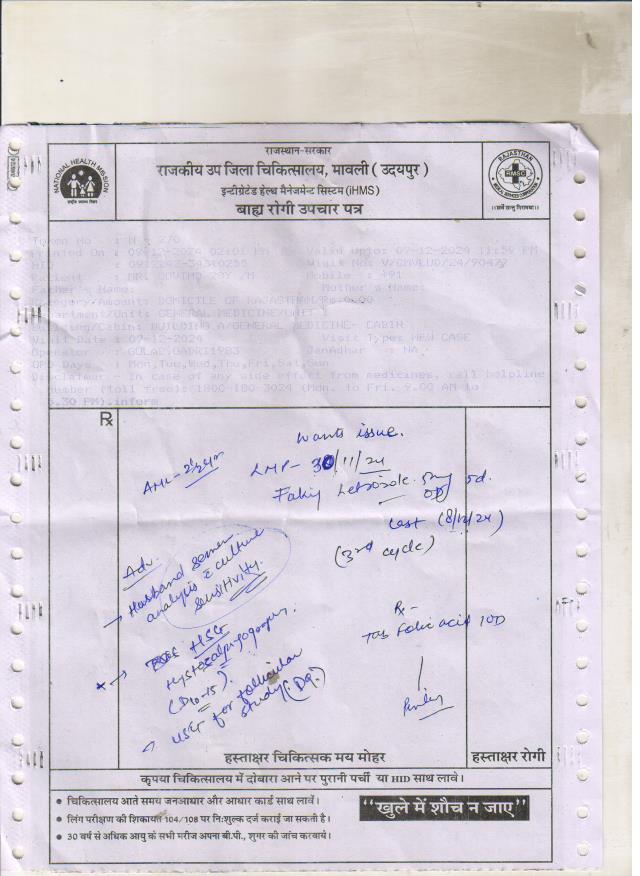 राजस्थान-सरकार
राजकीय उप जिला चिकित्सालय, मावली ( उदयपुर )
इन्टीग्रेटेड हेल्थ मैनेजमेन्ट सिस्टम (iHMS)
बाह्य रोगी उपचार पत्र
NATIONAL HEALTH MISSION
RAJASTHAN
RMSC
Token No : N - 270
Printed On : 09-12-2024 02:01 PM Valid Upto: 09-12-2024 11:59 PM
Visit No:
Patient : Mobile : 491
Father's Name: Mother's Name:
Category-Amount: DOMICILE OF RAJASTHAN/Rs.0.00
Department/Unit: GENERAL MEDICINE/UNIT
Building/Cabin: BUILDING A/GENERAL MEDICINE- CABIN
Visit Date : 09-12-2024 Visit Type: NEW CASE
Operator : JanAdhar : NA
OPD Days : Mon,Tue,Wed,Thu,Fri,Sat,Sun
Disclaimer - In case of any side effect from medicines, call helpline
number (toll free): 1800-180-3024 (Mon. to Fri. 9.00 AM to
5.30 PM).inform
Rx
wants issue.
LMP - 30/11/24
Letrozole 5mg
Last (8/12/24)
(3rd cycle)
Adv.
→ Husband semen
analysis & culture
sensitivity.
HSG
(D10-15).
→ USG for follicular
study (D9).
Rx-
Tab Folic acid 10D
हस्ताक्षर चिकित्सक मय मोहर
हस्ताक्षर रोगी
कृपया चिकित्सालय में दोबारा आने पर पुरानी पर्ची या HID साथ लावें।
• चिकित्सालय आते समय जनआधार और आधार कार्ड साथ लावें।
• लिंग परीक्षण की शिकायत 104/108 पर नि:शुल्क दर्ज कराई जा सकती है।
• 30 वर्ष से अधिक आयु के सभी मरीज अपना बी.पी., शुगर की जांच करवायें।
"खुले में शौच न जाए"